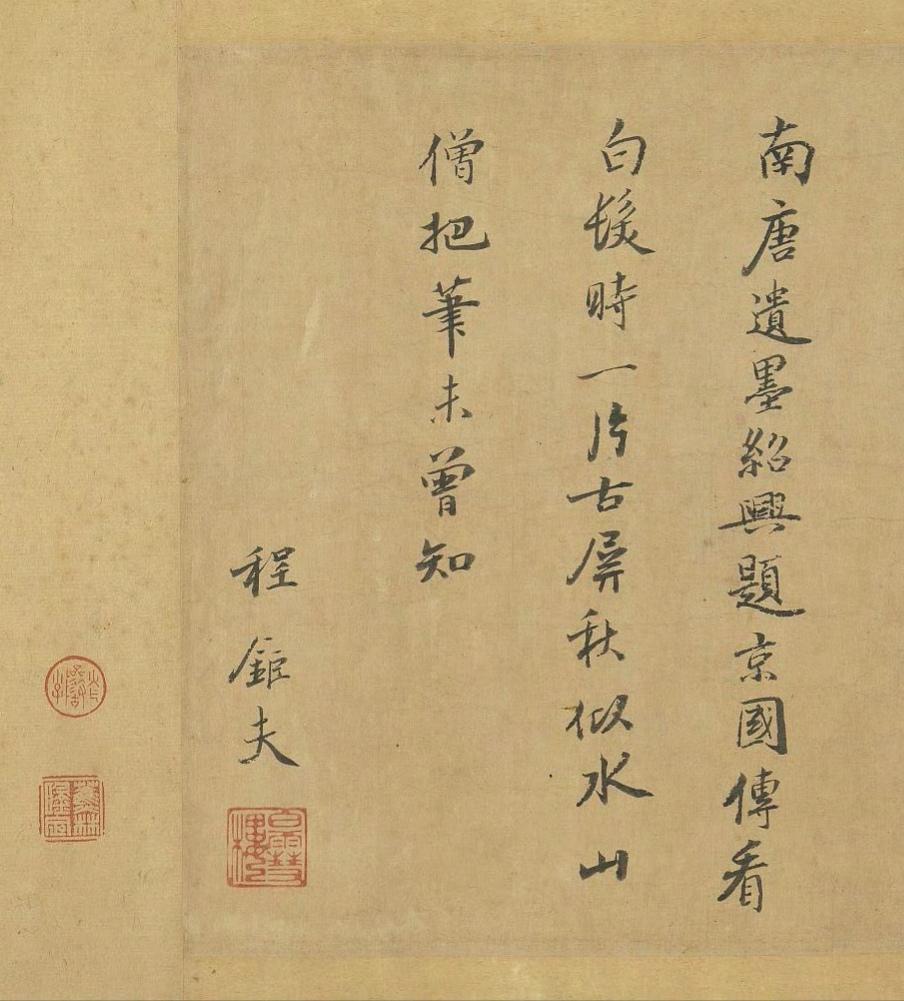 南唐遺墨紹興題京國傳看
白髮時一片古屏秋似水山
僧把筆未曾知
程鉅夫